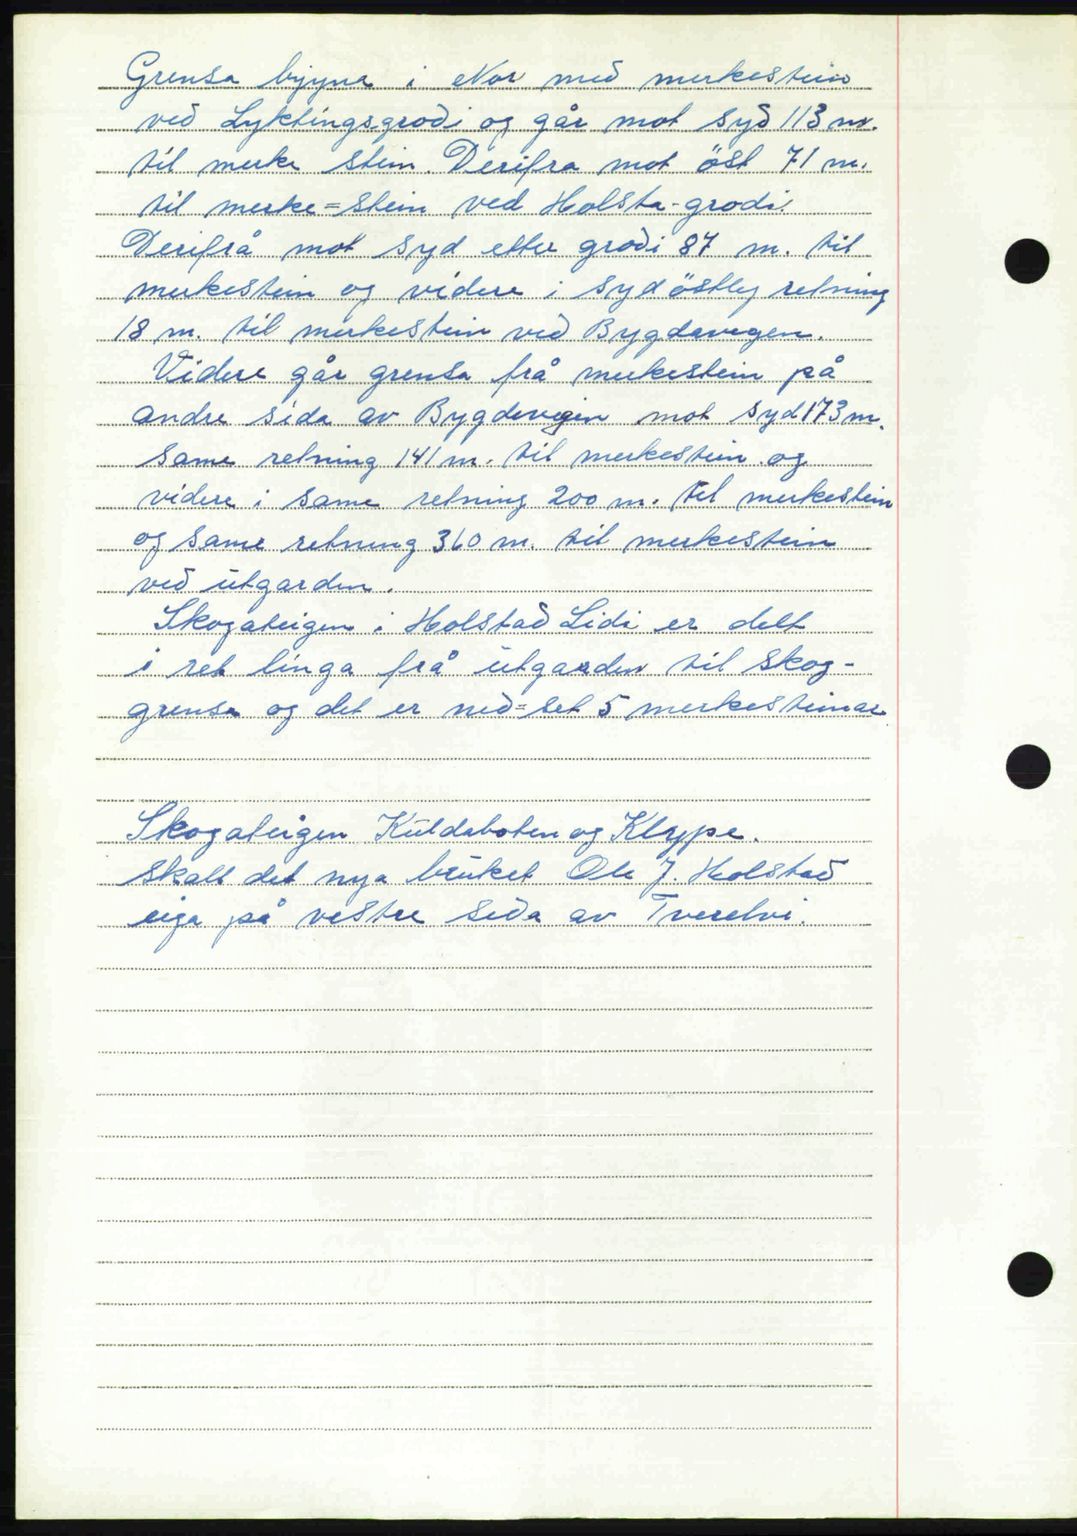 Grensa byyna i Nor med merkestein
ved Lyktingsgrodi og går mot syd 113 m.
til merke stein. Derifra mot öst 71 m.
til merke=stein ved Holsta-grodi.
Derifrå mot syd etter grodi 87 m. til
merkestein og videre i sydöstleg retning
18 m. til merkestein ved Bygdavegen.
Videre går grensa frå merkestein på
andre sida av Bygdevegin mot syd 173 m.
same retning 141 m. til merkestein og
videre i same retning 200 m. til merkestein
og same retning 360 m. til merkestein
ved utgarden.
Skogateigen i Holstad Lidi er delt
i ret linga frå utgarden til skog-
grensa og det er ned=set 5 merkesteinar
Skogateigen Kuldeboten og Kleppe.
skall det nya bruket Ole J. Holstad
eiga på vestre sida av Tverelvi.